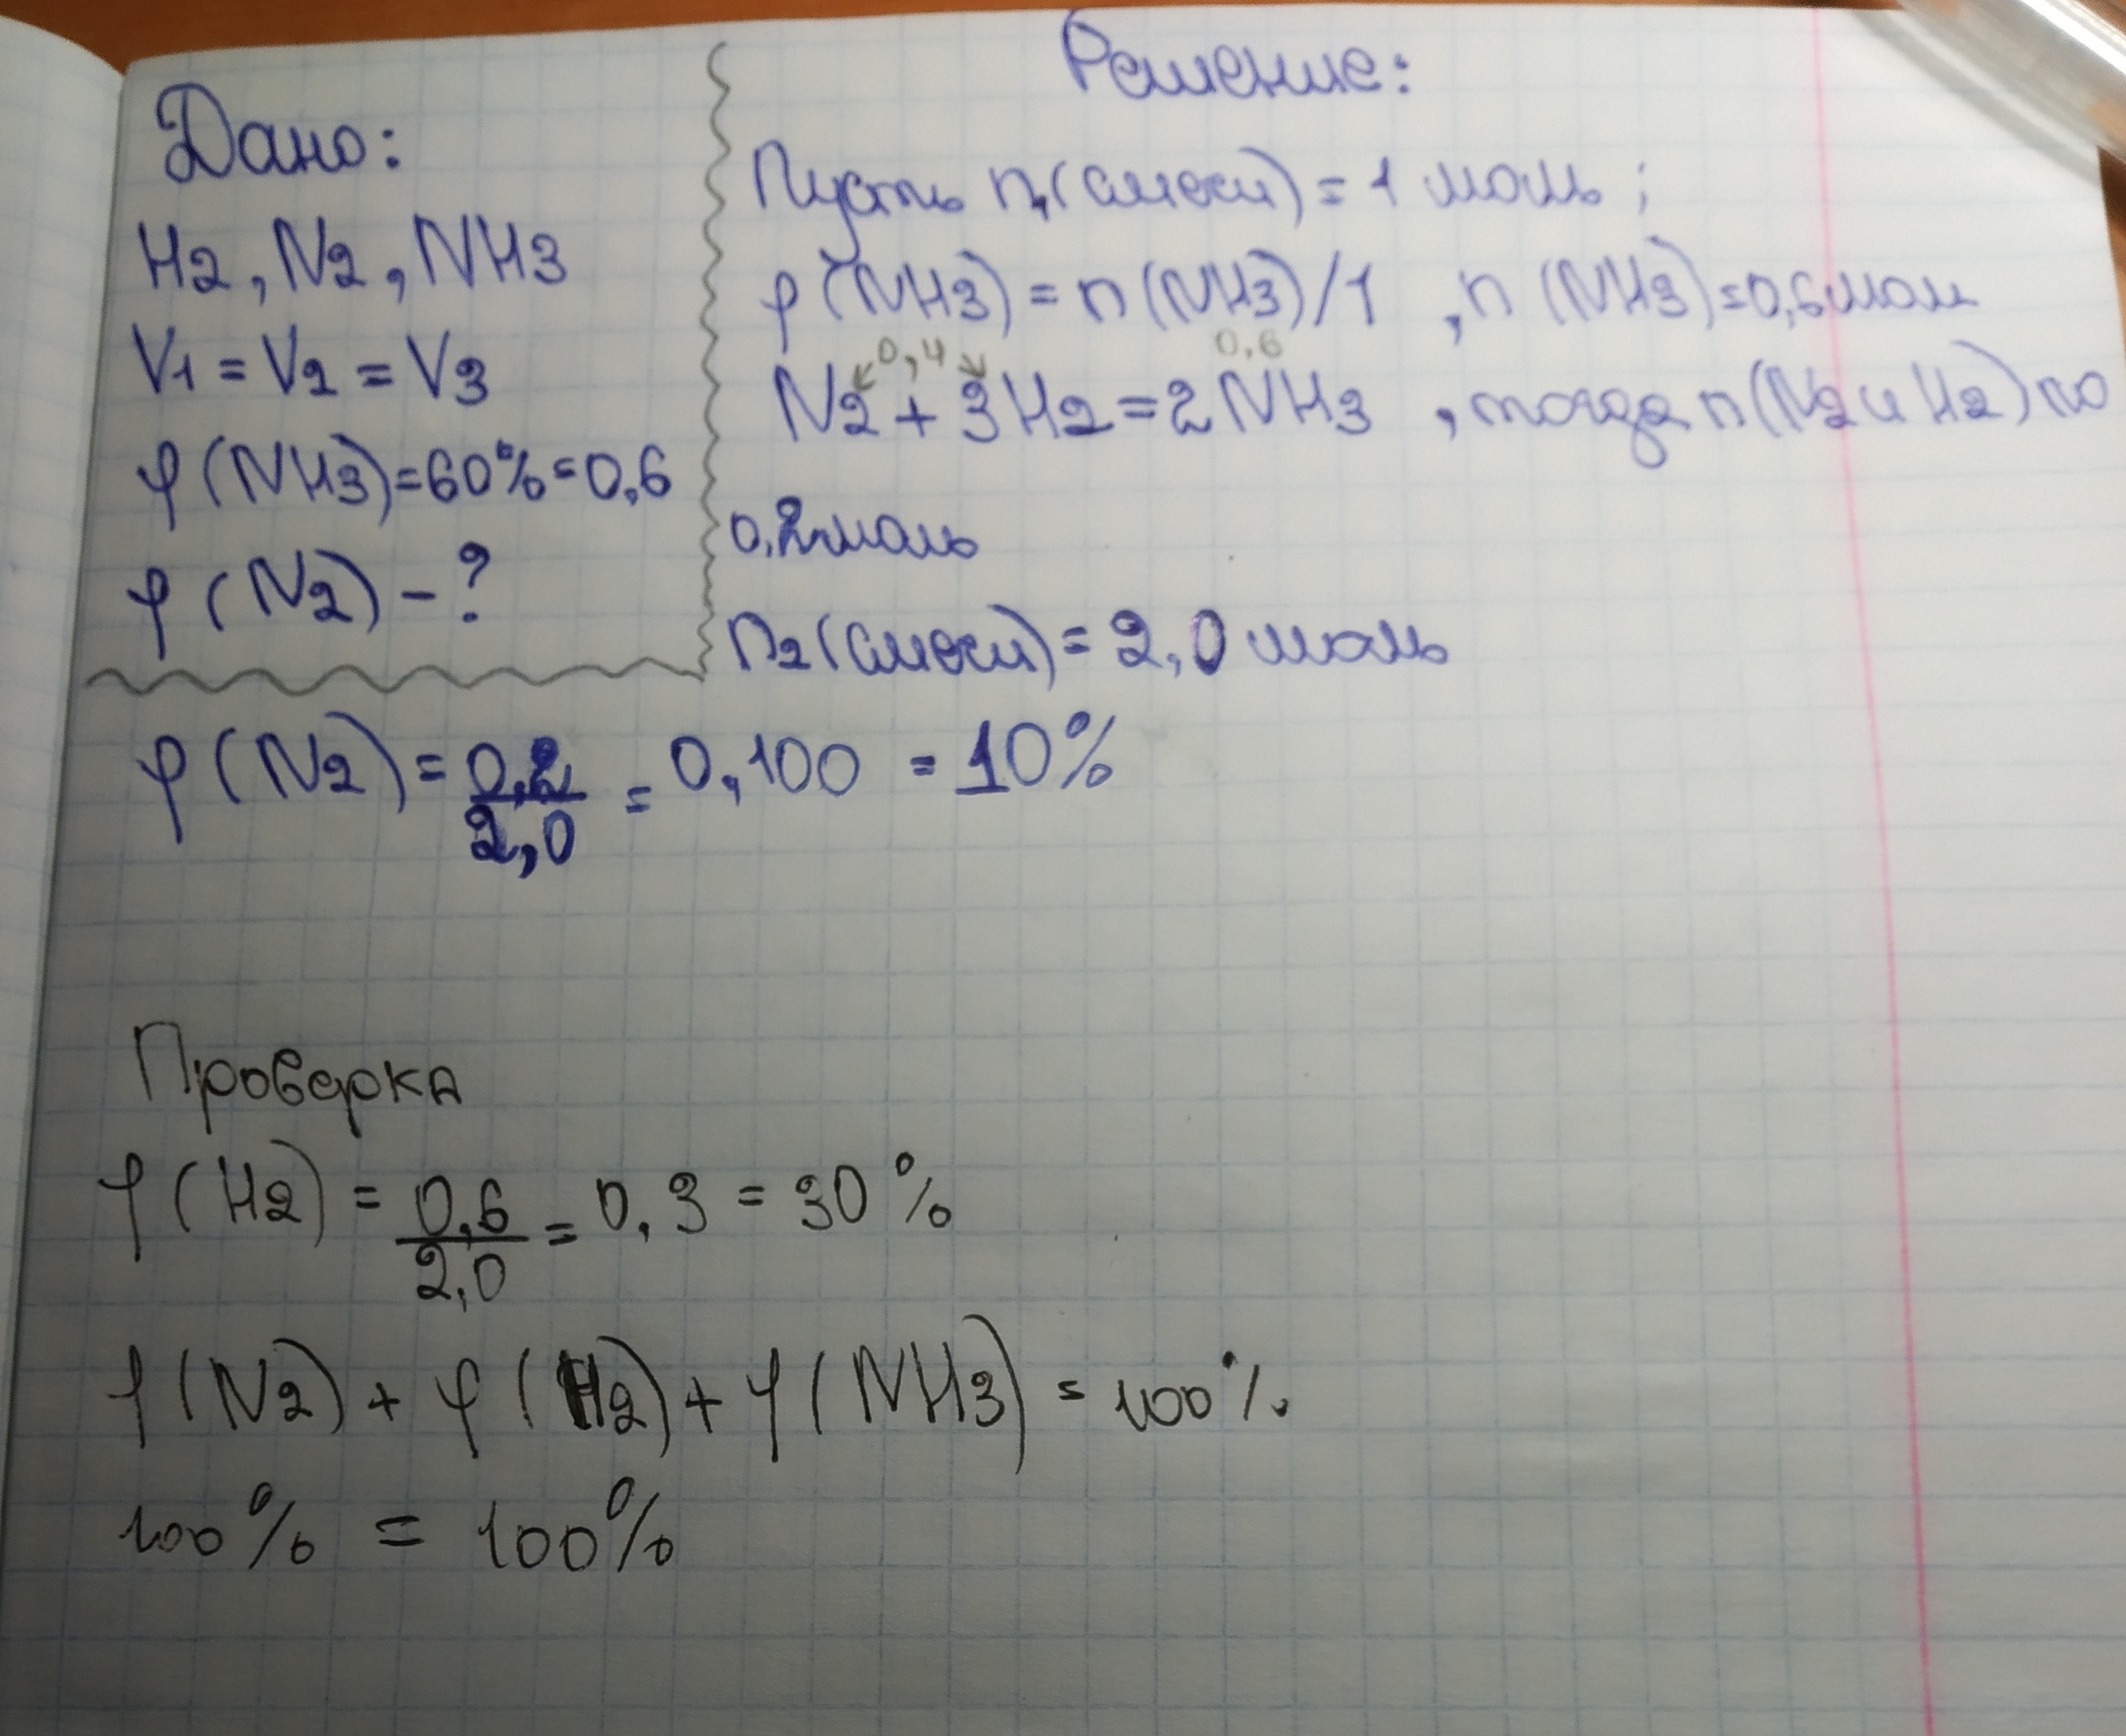 Дано:
H2, N2, NH3
V1 = V2 = V3
φ (NH3) = 60% = 0,6
φ (N2) - ?
Решение:
Пусть n1 (смеси) = 1 моль ;
φ (NH3) = n (NH3) / 1 , n (NH3) = 0,6 моль
0,4 0,6
N2 + 3H2 = 2NH3 , тогда n (N2 и H2) по
0,2 моль
n2 (смеси) = 2,0 моль
φ (N2) = 0,2 / 2,0 = 0,100 = 10%
Проверка
φ (H2) = 0,6 / 2,0 = 0,3 = 30%
φ (N2) + φ (H2) + φ (NH3) = 100%
100% = 100%